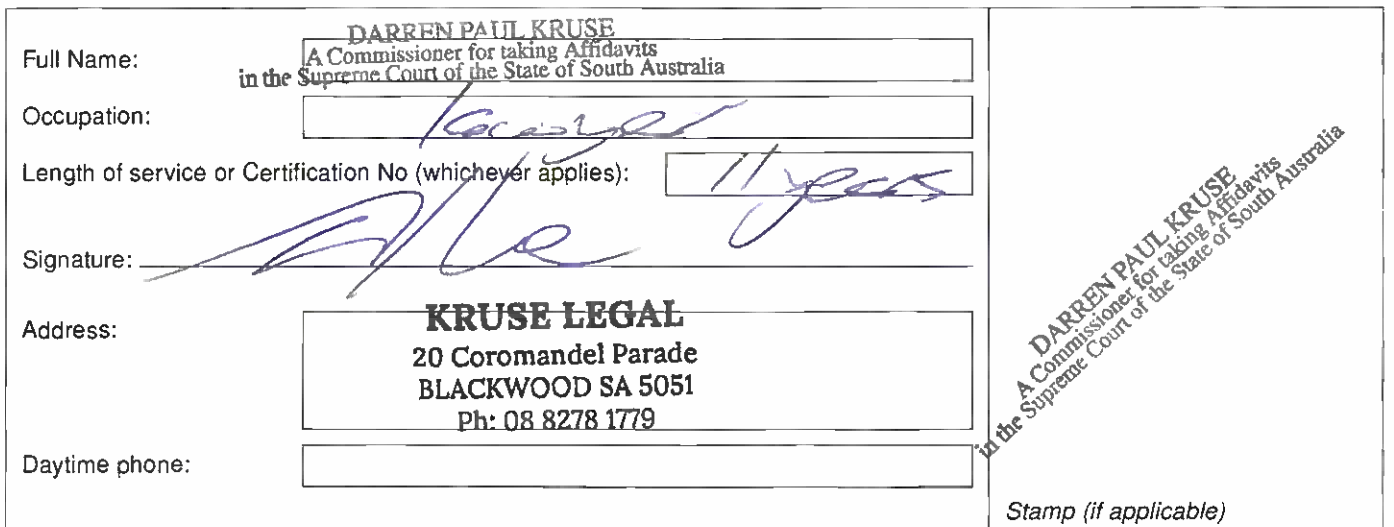 Full Name:
DARREN PAUL KRUSE
A Commissioner for taking Affidavits
in the Supreme Court of the State of South Australia
Occupation:
Lawyer
Length of service or Certification No (whichever applies):
11 years
Signature:
Address:
KRUSE LEGAL
20 Coromandel Parade
BLACKWOOD SA 5051
Ph: 08 8278 1779
Daytime phone:
DARREN PAUL KRUSE
A Commissioner for taking Affidavits
in the Supreme Court of the State of South Australia
Stamp (if applicable)